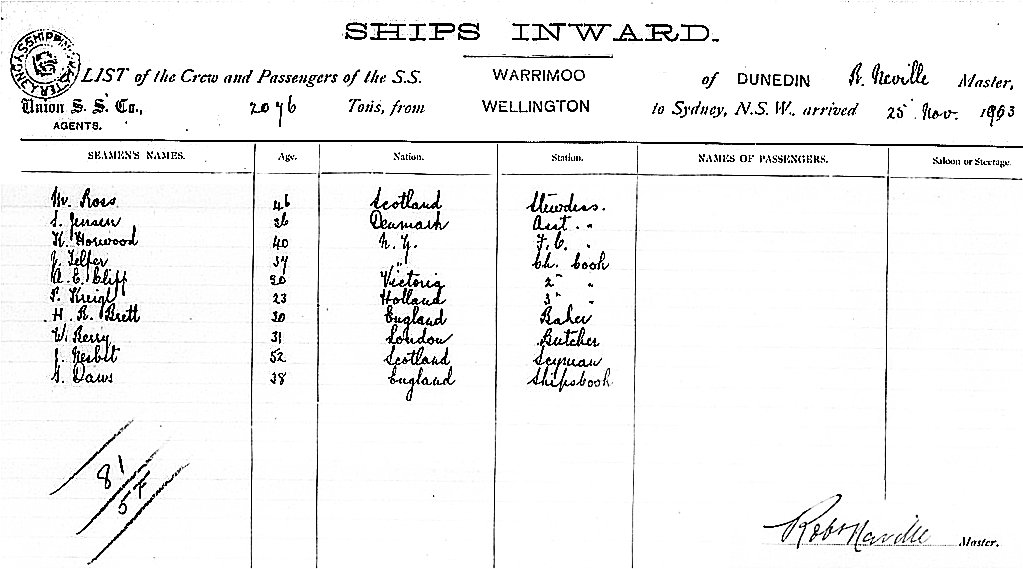 SHIPS INWARD.
SYDNEY SHIPPING MASTER
LIST of the Crew and Passengers of the S.S. WARRIMOO of DUNEDIN R. Neville Master,
Union S. S. Co., 2076 Tons, from WELLINGTON to Sydney, N.S.W., arrived 25 Nov. 1903
AGENTS.
SEAMEN'S NAMES. Age. Nation. Station. NAMES OF PASSENGERS. Saloon or Steerage.
M. Ross 46 Scotland Stewdess.
S. Jensen 36 Denmark Asst. "
K. Horwood 40 N. Z. F.C. "
J. Telfer 37 " Ch. Cook
A. E. Cliff 20 Victoria 2nd "
P. 23 Holland 3rd "
H. R. Brett 30 England Baker
W. Berry 31 London Butcher
J. Nesbit 52 Scotland
38 England Shipscook
81
5 F
Robt Neville Master.